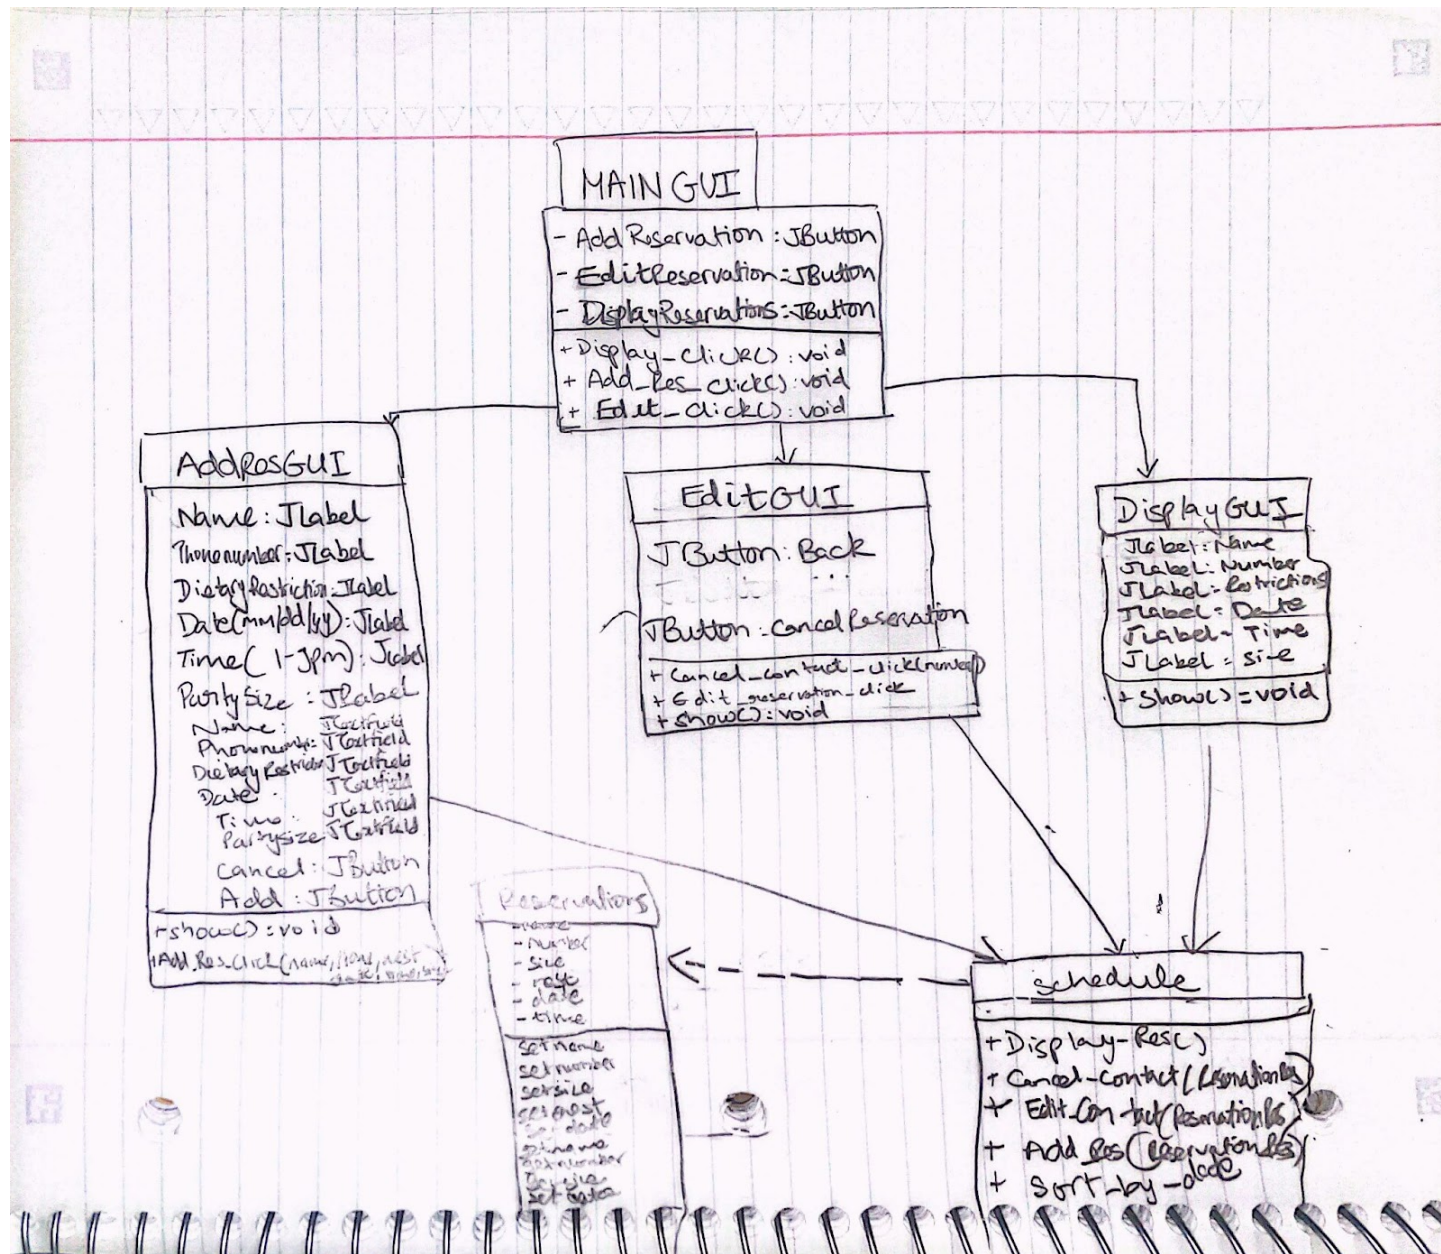 MAIN GUI
- AddReservation : JButton
- EditReservation : JButton
- DisplayReservations : JButton
+ Display_Click() : void
+ Add_Res_Click() : void
+ Edit_Click() : void
AddResGUI
Name : JLabel
Phonenumber : JLabel
DietaryRestriction : JLabel
Date(mm/dd/yy) : JLabel
Time( ) : JLabel
PartySize : JLabel
Name : JTextfield
Phonenumber : JTextfield
DietaryRestriction JTextfield
Date : JTextfield
Time : JTextfield
Partysize JTextfield
Cancel : JButton
Add : JButton
+show() : void
+Add_Res_Click(name,
EditGUI
JButton : Back
...
JButton : CancelReservation
+ Cancel_contact_click(number)
+ Edit_reservation_click
+ show() : void
DisplayGUI
JLabel : Name
JLabel : Number
JLabel : Restrictions
JLabel : Date
JLabel - Time
JLabel : Size
+ show() : void
Reservations
- name
- number
- size
- rest
- date
- time
setname
setnumber
setsize
setrest
set date
getname
getnumber
schedule
+ Display-Res()
+ Cancel-Contact(Reservation Res)
+ Edit_Contact(Reservation Res)
+ Add_Res(Reservation Res)
+ Sort_by_date